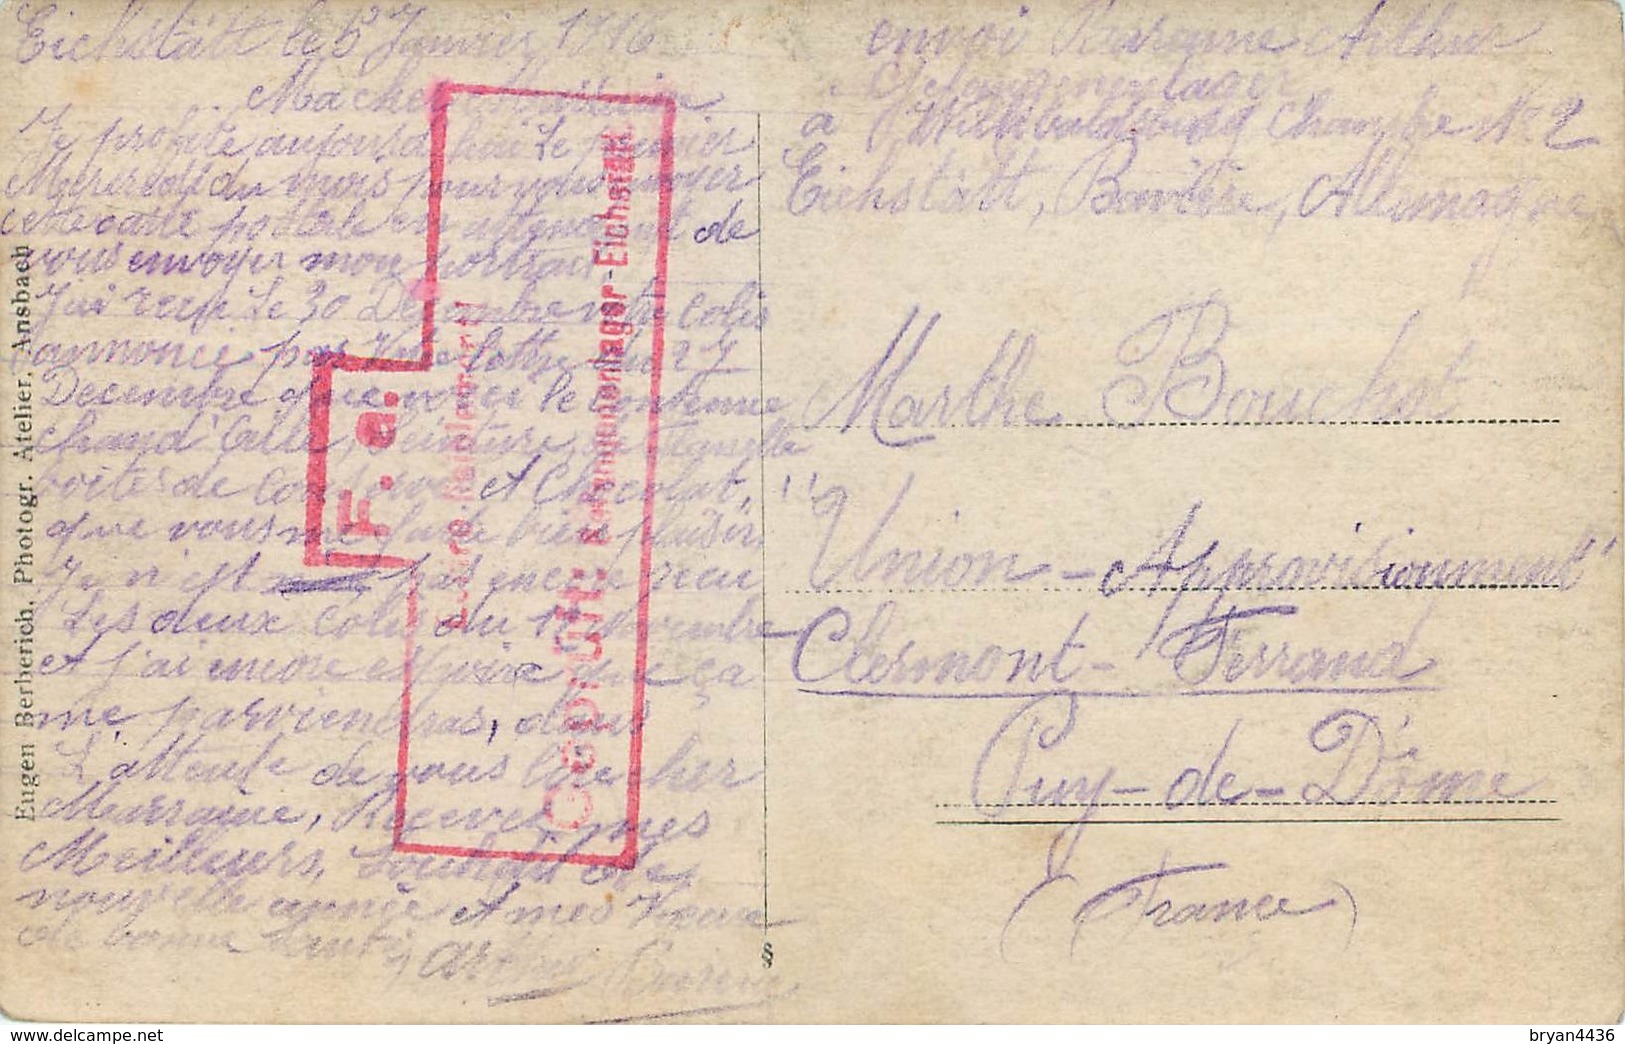 Eichstätt le 5 Janvier 1916
Ma chère Marraine
Je profite aujourd'hui le premier
Mercredi du mois pour vous envoyer
cette carte postale en attendant de
vous envoyer mon portrait,
J'ai reçu le 30 Décembre votre colis
annoncé par votre lettre du 27
Décembre que voici le contenue
chand'aille, ceinture, de flanelle
boites de conserve et Chocolat,
que vous me faite bien plaisir,
Je n'est pas encore reçu
Les deux colis du 17 Novembre
et j'ai encore espoire que ça
me parviendras, dans
L'attente de vous lire cher
Marraine, Recevez mes
Meilleurs, souhait de
nouvelle année et mes Voeux
de bonne santé, Arthur
envoi Arthur
Gefangenenlager
à Willibaldsburg Chambre No 2
Eichstätt, Bavière, Allemagne
Marthe Bouchot
"Union-Approvisionnement"
Clermont-Ferrand
Puy-de-Dôme
(France)
F. a.
Geprüft:
Kgl. Gefangenenlager-Eichstätt
Eugen Berberich, Photogr. Atelier, Ansbach
§
bryan4436